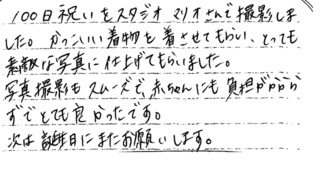 100日祝いをスタジオマリオさんで撮影しま
した。かっこいい着物を着させてもらい、とっても
素敵な写真に仕上げてもらいました。
写真撮影もスムーズで、赤ちゃんにも負担がかから
ずとても良かったです。
次は誕生日にまたお願いします。